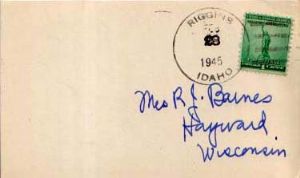 RIGGINS
FEB
23
1945
IDAHO
Mrs R. J. Barnes
Hayward
Wisconsin